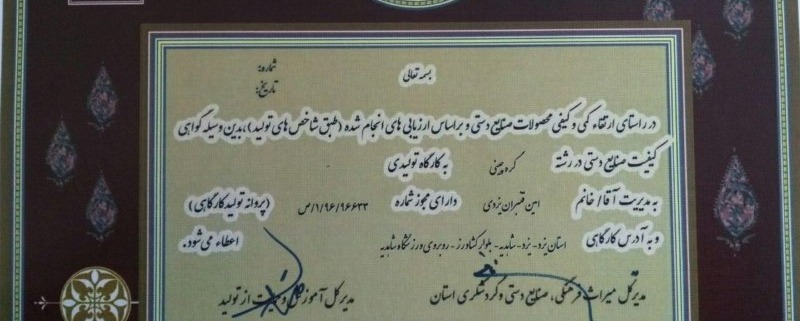 بسمه تعالی
شماره:
تاریخ:
در راستای ارتقاء کمی و کیفی محصولات صنایع دستی و براساس ارزیابی های انجام شده (طبق شاخص های تولید)، بدین وسیله گواهی
کیفیت صنایع دستی در رشته گره چینی به کارگاه تولیدی
به مدیریت آقا/خانم امین قنبران یزدی دارای مجوز شماره ۹۶۶۳۳/۱/۹۶/ص (پروانه تولید کارگاهی)
و به آدرس کارگاهی استان یزد- یزد- شاهدیه- بلوار کشاورز- روبروی ورزشگاه شاهدیه اعطاء می شود.
مدیرکل میراث فرهنگی، صنایع دستی و گردشگری استان
مدیرکل آموزش و از تولید